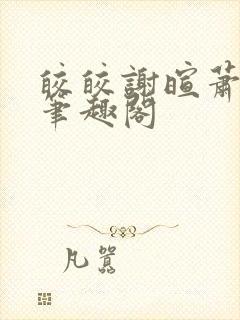 皎皎謝暄蕭
筆趣閣
凡囂